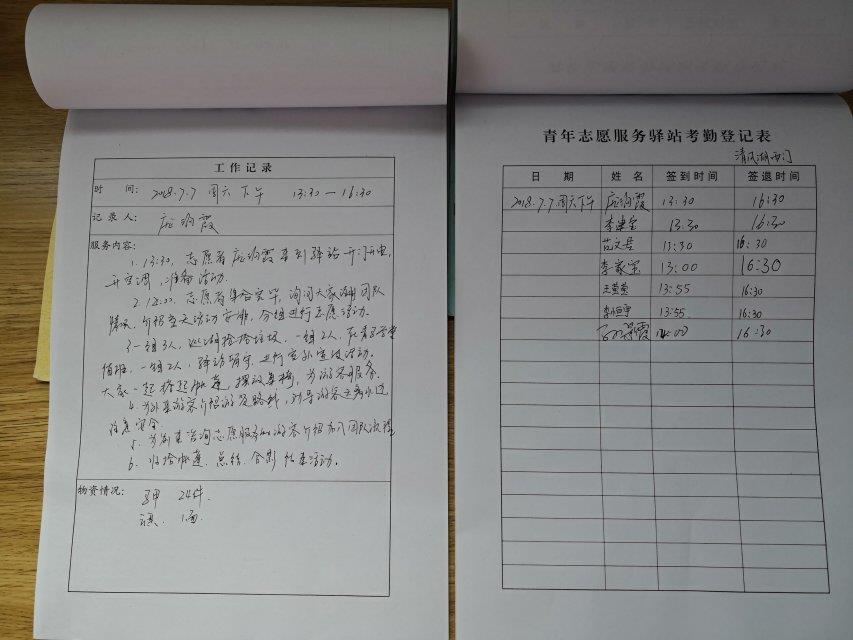 工作记录
时 间: 2018.7.7 周六下午 13:30—16:30
记录人: 庞纳霞
服务内容:
1. 13:30, 志愿者庞纳霞来到驿站开门开电,
开空调, 准备活动.
2. 14:00, 志愿者集合完毕, 询问大家对团队
情况, 介绍今天活动安排, 分组进行志愿活动.
3. 一组3人, 巡湖捡拾垃圾, 一组2人,
值班, 一组2人, 驿站留守, 进行室外宣传活动.
大家一起搭起帐篷, 摆放桌椅, 为游客服务.
4. 为外来游客介绍游览路线, 引导游客
注意安全.
5. 为前来咨询志愿服务的游客介绍加入团队流程
6. 收拾帐篷. 总结. 合影 结束活动.
物资情况:
马甲 24件.
1面.
青年志愿服务驿站考勤登记表
清风湖西门
日 期 姓 名 签到时间 签退时间
2018.7.7周六下午 庞纳霞 13:30 16:30
李建宝 13:30 16:30
范文君 13:30 16:30
李家宝 13:00 16:30
王莹莹 13:55 16:30
李恒宇 13:55 16:30
霞 14:00 16:30